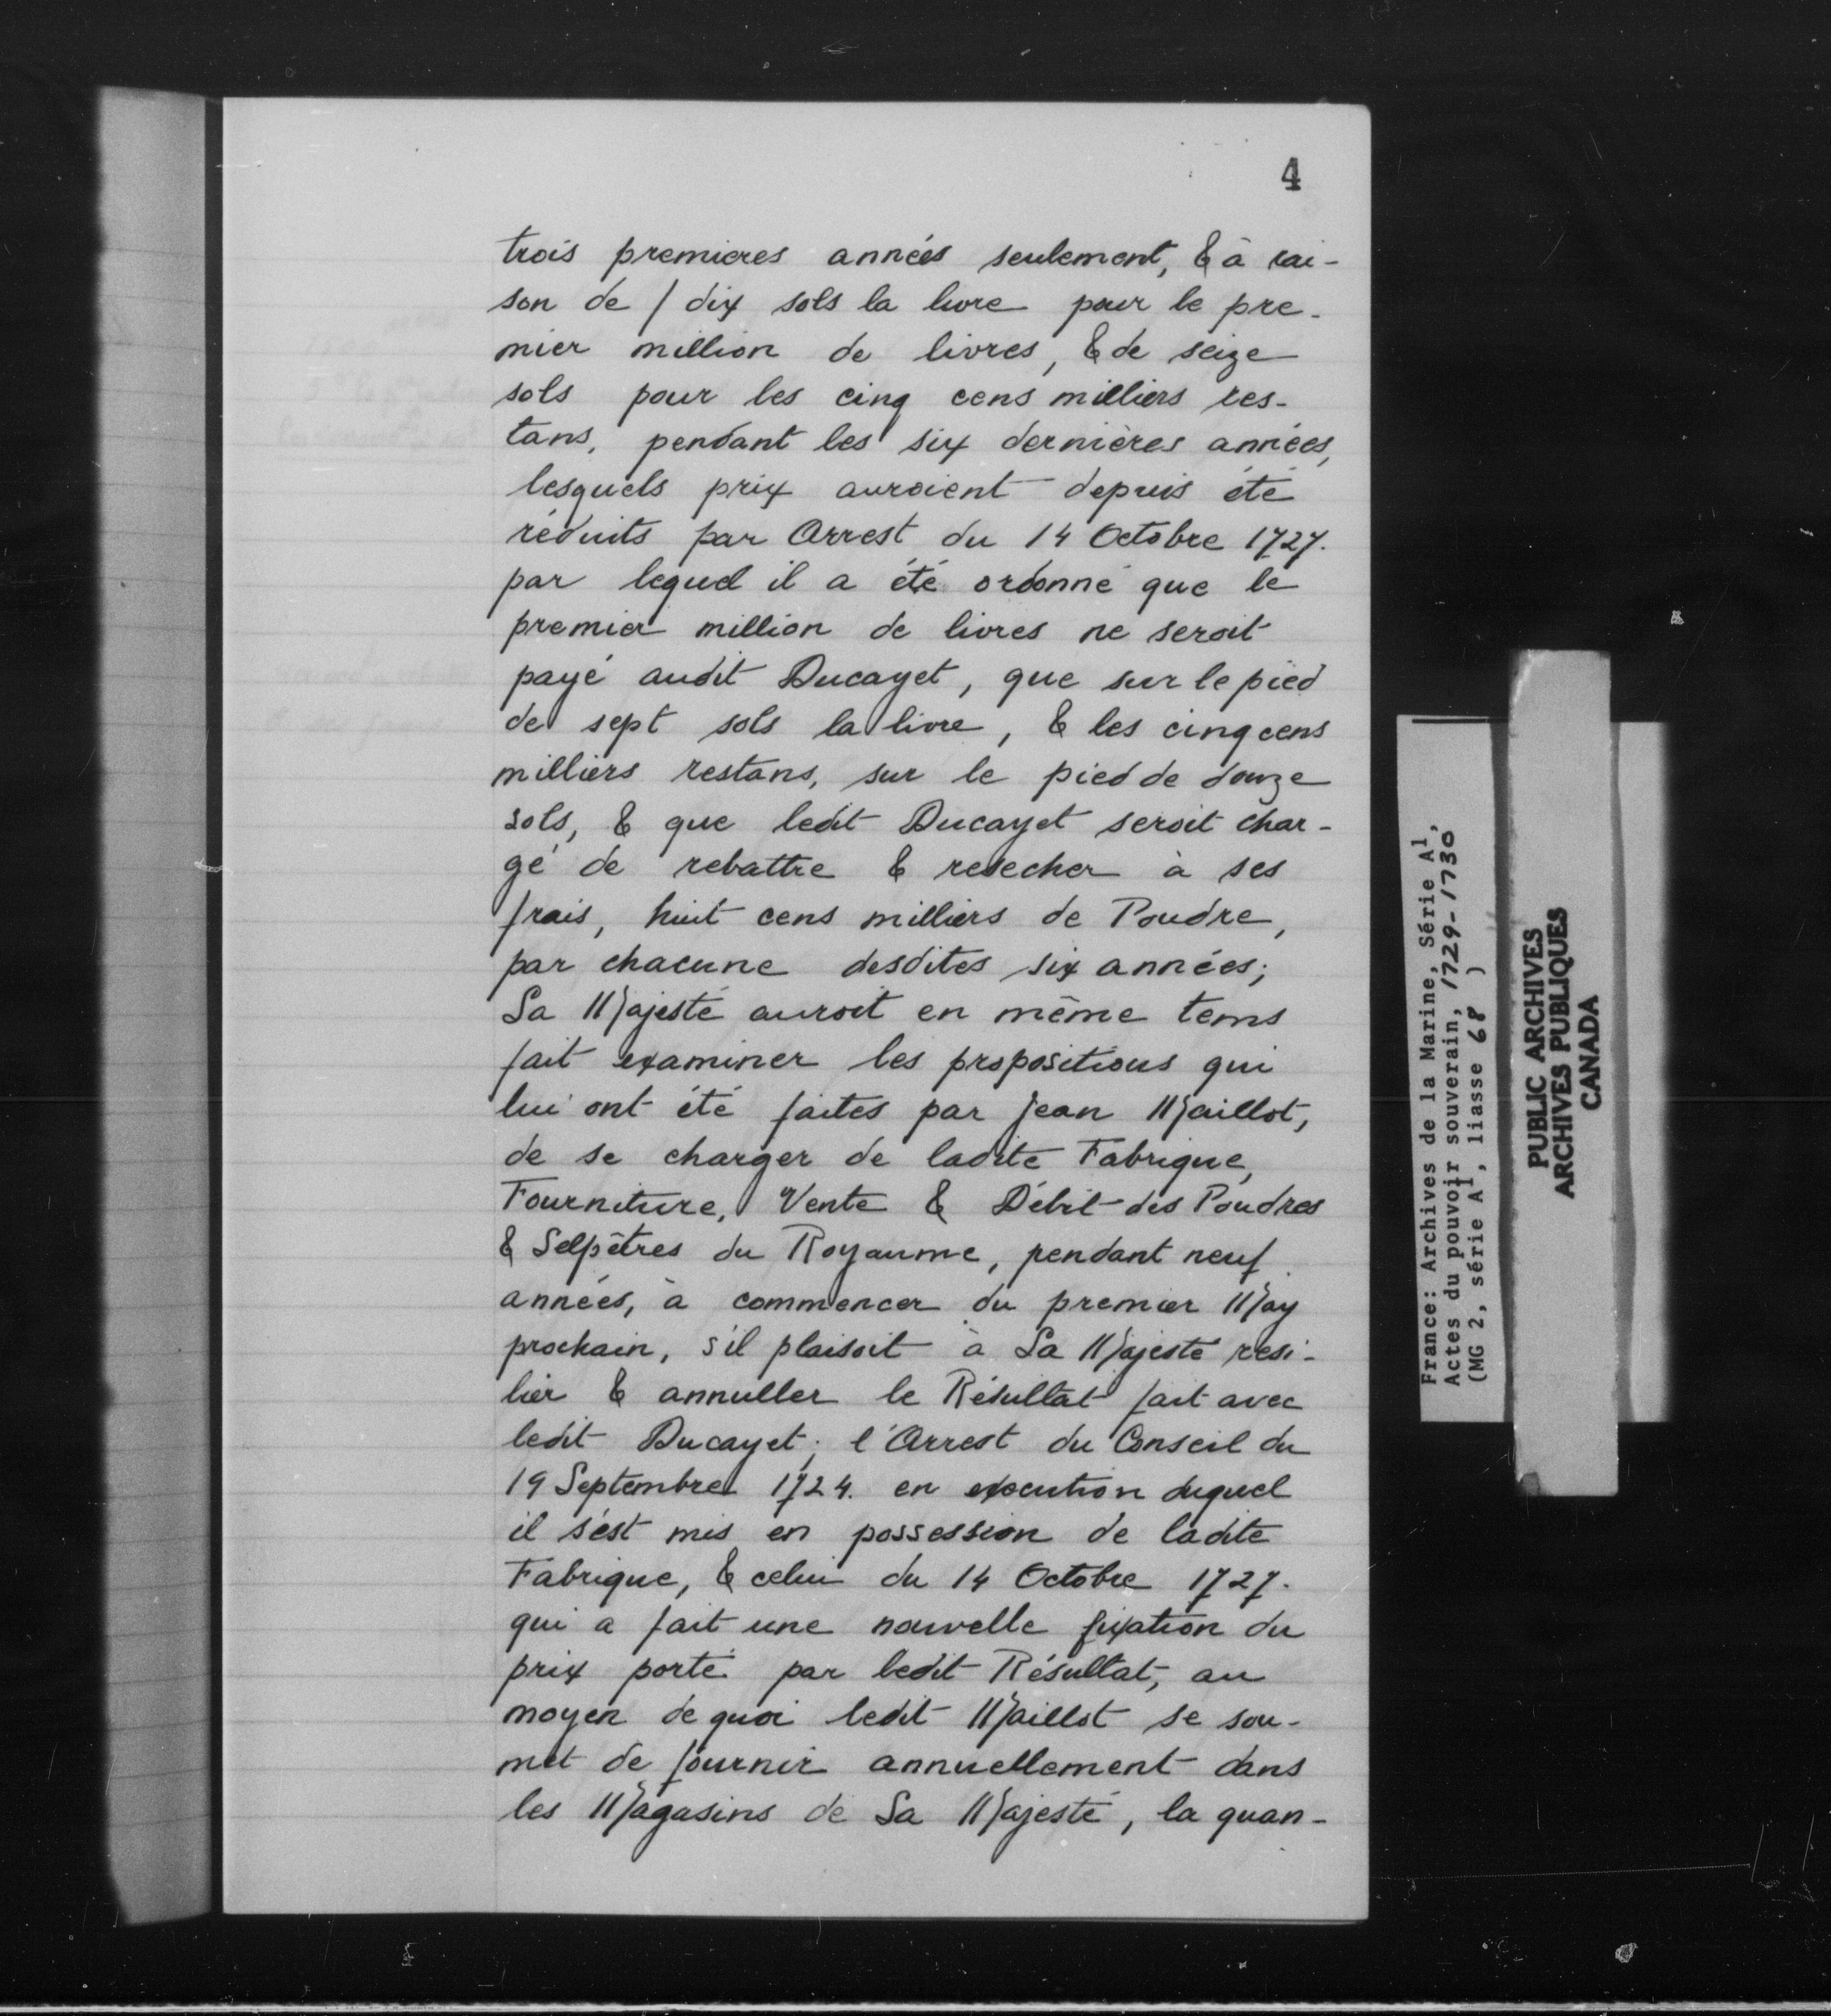 4
trois premieres années seulement, & à rai-
son de / dix sols la livre pour le pre-
mier million de livres, & de seize
sols pour les cinq cens milliers res-
tans, pendant les six dernières années,
lesquels prix auroient depuis été
réduits par Arrest du 14 Octobre 1727.
par lequel il a été ordonné que le
premier million de livres ne seroit
payé audit Ducayet, que sur le pied
de sept sols la livre, & les cinq cens
milliers restans, sur le pied de douze
sols, & que ledit Ducayet seroit char-
gé de rebattre & resecher à ses
frais, huit cens milliers de Poudre,
par chacune desdites six années;
Sa Majesté auroit en même tems
fait examiner les propositions qui
lui ont été faites par Jean Maillot,
de se charger de ladite Fabrique,
Fourniture, Vente & Débit des Poudres
& Selpêtres du Royaume, pendant neuf
années, à commencer du premier May
prochain, s'il plaisoit à Sa Majesté resi-
lier & annuller le Résultat fait avec
ledit Ducayet; l'Arrest du Conseil du
19 Septembre 1724. en execution duquel
il s'est mis en possession de ladite
Fabrique, & celui du 14 Octobre 1727.
qui a fait une nouvelle fixation du
prix porté par ledit Résultat, au
moyen de quoi ledit Maillot se sou-
met de fournir annuellement dans
les Magasins de Sa Majesté, la quan-
France: Archives de la Marine, Série A1,
Actes du pouvoir souverain, 1729-1730
(MG 2, série A1, liasse 68 )
PUBLIC ARCHIVES
ARCHIVES PUBLIQUES
CANADA